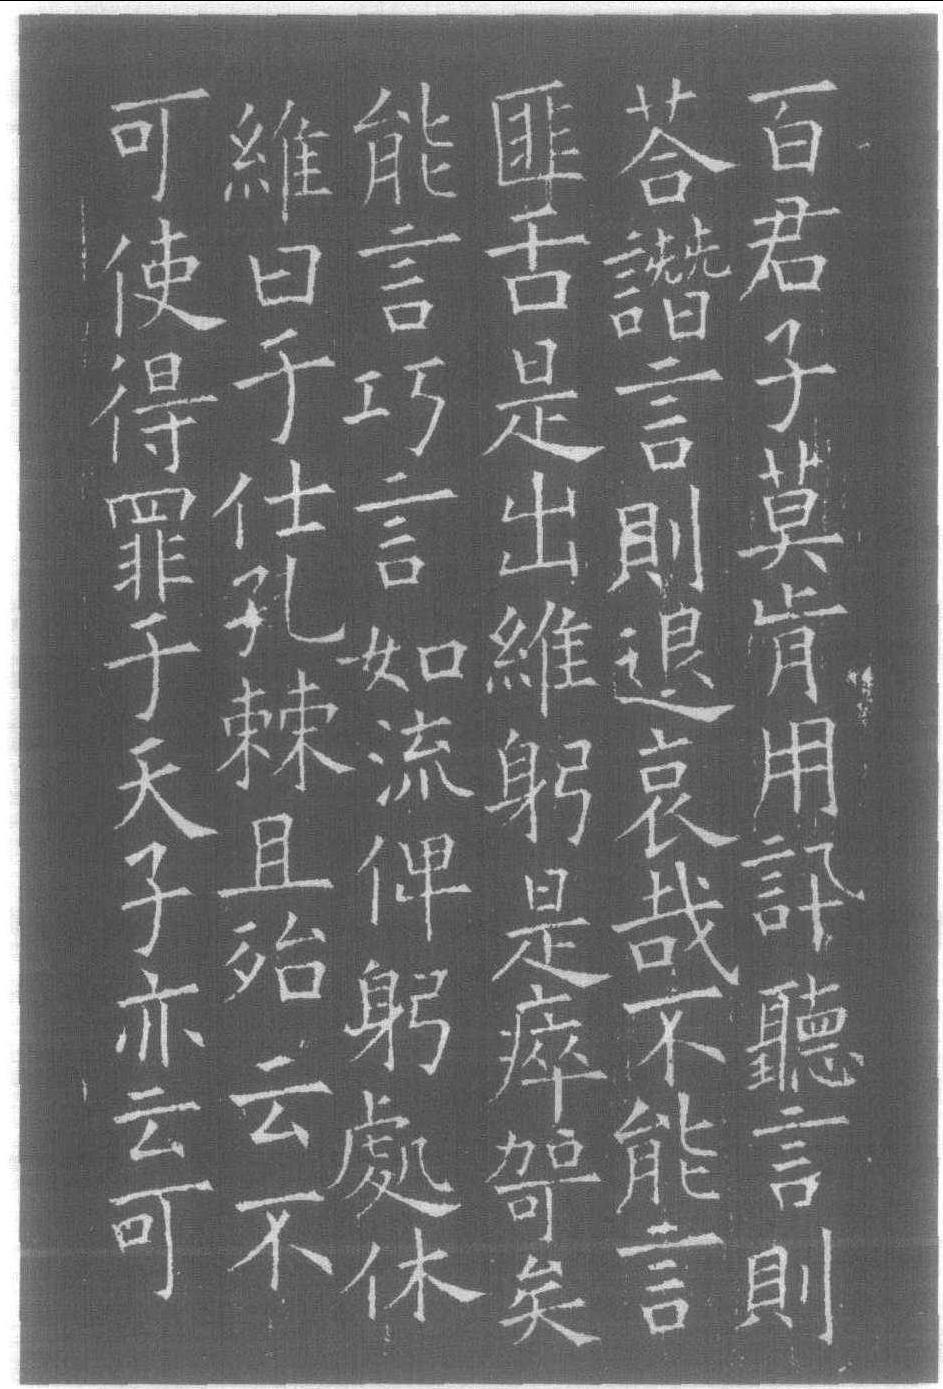 百君子莫肯用訊聽言則
荅譖言則退哀哉不能言
匪舌是出維躬是瘁哿矣
能言巧言如流俾躬處休
維曰于仕孔棘且殆云不
可使得罪于天子亦云可